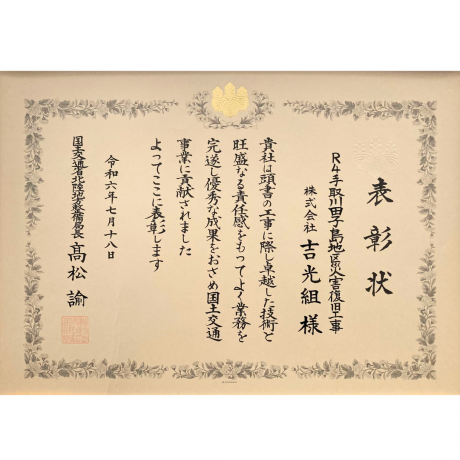 表彰状
R4手取川男子島地区災害復旧工事
株式会社 吉光組 様
貴社は頭書の工事に際し卓越した技術と
旺盛なる責任感をもってよく業務を
完遂し優秀な成果をおさめ国土交通
事業に貢献されました
よってここに表彰します
令和六年七月十八日
国土交通省北陸地方整備局長 髙松諭